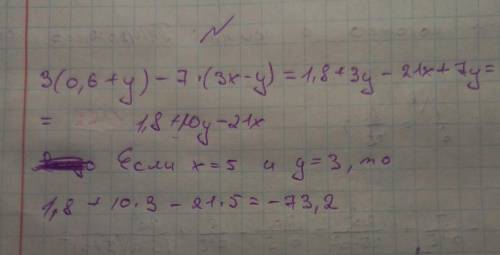 N
3(0,6+y)-7·(3x-y)=1,8+3y-21x+7y=
= 1,8+10y-21x
Если x=5 и y=3, то
1,8+10·3-21·5=-73,2